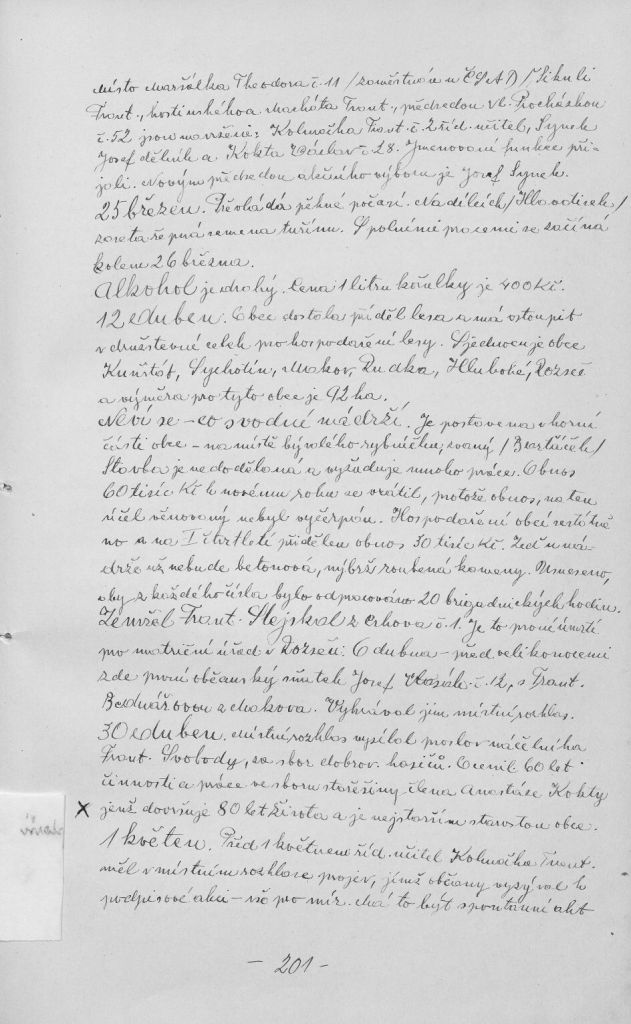 místo Maršálka Theodora č. 11 /zaměstnán u ČSAD/ Sikuli
Frant., hostinského a Macháta Frant., předsedou vl. Procházkou
č. 52 jsou navrženi: Kolmačka Frant. č. 2 říd. učitel, Synek
Josef dělník a Kokta Václav č. 28. Jmenovaní funkce při-
jali. Novým předsedou akčního výboru je Josef Synek.
25 březen. Převládá pěkné počasí. Na dílcích /Hlavatisek/
zaseta řepná semena tuřínu. S polními pracemi se začíná
kolem 26 března.
Alkohol je drahý. Cena 1 litru kořalky je 400 Kč.
12 duben. Obec dostala příděl lesa a má ostoupit
v družstevné celek pro hospodaření lesy. Sjednocuje obce
Kunštát, Sychotín, Makov, Rudka, Hluboké, Rozseč
a výměra pro tyto obce je 92 ha.
Neví se – co s vodní nádrží. Je postavena v horní
části obce – na místě bývalého rybníčku, zvaný /Bartůšek/
Stavba je nedodělaná a vyžaduje mnoho práce. Obnos
60 tisíc Kč k novému roku se vrátil, protože obnos, na ten
účel věnovaný nebyl vyčerpán. Hospodaření obcí zestátně-
no a na I čtvrtletí přidělen obnos 30 tisíc Kč. Zeď u ná-
drže už nebude betonová, nýbrž roubená kameny. Usneseno,
aby z každého čísla bylo odpracováno 20 brigadnických hodin.
Zemřel Frant. Stejskal z Crhova č. 1. Je to první úmrtí
pro matriční úřad v Rozseči. 6 dubna – před velikonocemi
zde první občanský sňatek Josef Vlasák č. 12, s Frant.
Bednářovou z Makova. Vyhrával jim místní rozhlas.
30 duben. Místní rozhlas vysílal proslov náčelníka
Frant. Svobody, za sbor dobrov. hasičů. Ocenil 60 let
činnosti a práce ve sboru stařešiny člena Anastáze Kokty
X jenž dovršuje 80 let života a je nejstarším starostou obce.
1 květen. Před 1 květnem říd. učitel Kolmačka Frant.
měl v místním rozhlase projev, jímž občany vyzýval k
podpisové akci – vše pro mír. Má to být spontánní akt
– 201 –